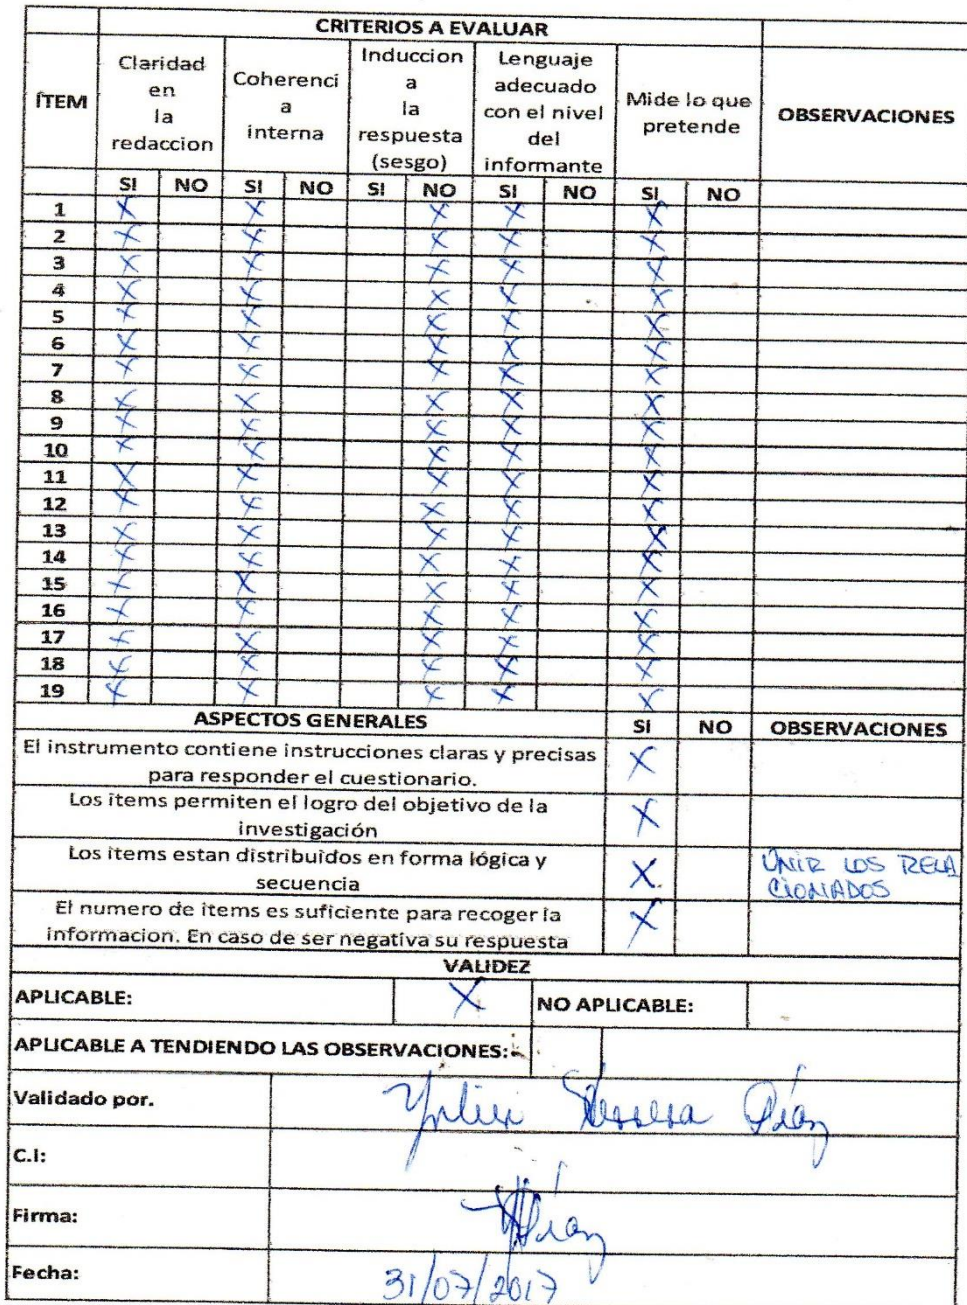 CRITERIOS A EVALUAR
ÍTEM Claridad en la redaccion Coherencia interna Induccion a la respuesta (sesgo) Lenguaje adecuado con el nivel del informante Mide lo que pretende OBSERVACIONES
SI NO SI NO SI NO SI NO SI NO
1 X X X X X
2 X X X X X
3 X X X X X
4 X X X X X
5 X X X X X
6 X X X X X
7 X X X X X
8 X X X X X
9 X X X X X
10 X X X X X
11 X X X X X
12 X X X X X
13 X X X X X
14 X X X X X
15 X X X X X
16 X X X X X
17 X X X X X
18 X X X X X
19 X X X X X
ASPECTOS GENERALES SI NO OBSERVACIONES
El instrumento contiene instrucciones claras y precisas
para responder el cuestionario. X
Los ítems permiten el logro del objetivo de la
investigación X
Los ítems estan distribuidos en forma lógica y
secuencia X UNIR LOS RELA
CIONADOS
El numero de ítems es suficiente para recoger la
informacion. En caso de ser negativa su respuesta X
VALIDEZ
APLICABLE: X NO APLICABLE:
APLICABLE A TENDIENDO LAS OBSERVACIONES:
Validado por. Díaz
C.I:
Firma: Díaz
Fecha: 31/07/2017